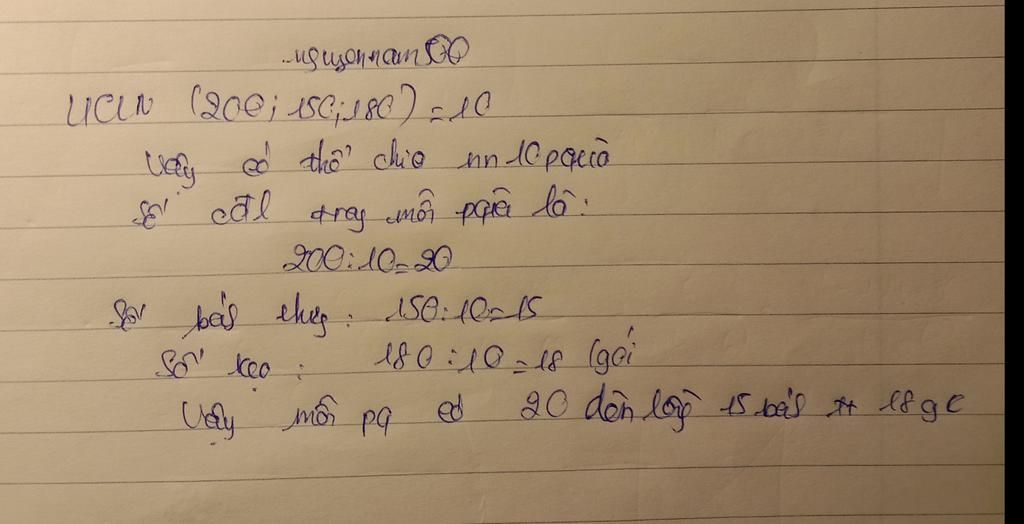 nguyennam00
UCLN (200; 150; 180) = 10
Vậy có thể chia nn 10 pquà
Số cái trog mỗi pq là:
200:10=20
Số bán: 150:10=15
Số kẹo: 180:10=18 (gói
Vậy mỗi pq có 20 đèn lồg 15 bán 18 g